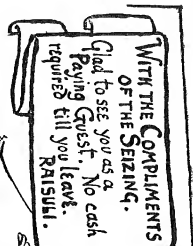 WITH THE COMPLIMENTS
OF THE SEIZING.
Glad to see you as a
Paying Guest. No cash
required till you leave.
RAISULI.